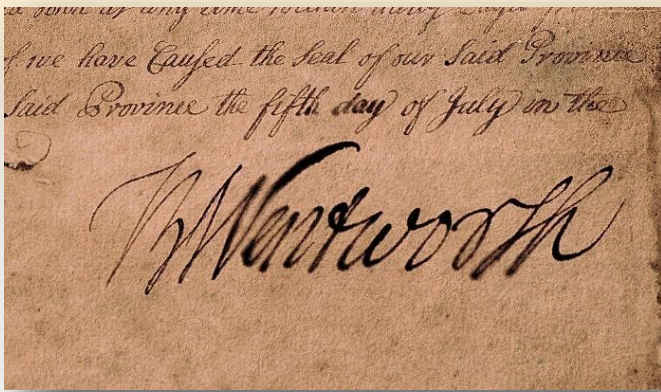 at any time within
we have Caused the Seal of our Said Province
Said Province the fifth day of July in the
B Wentworth